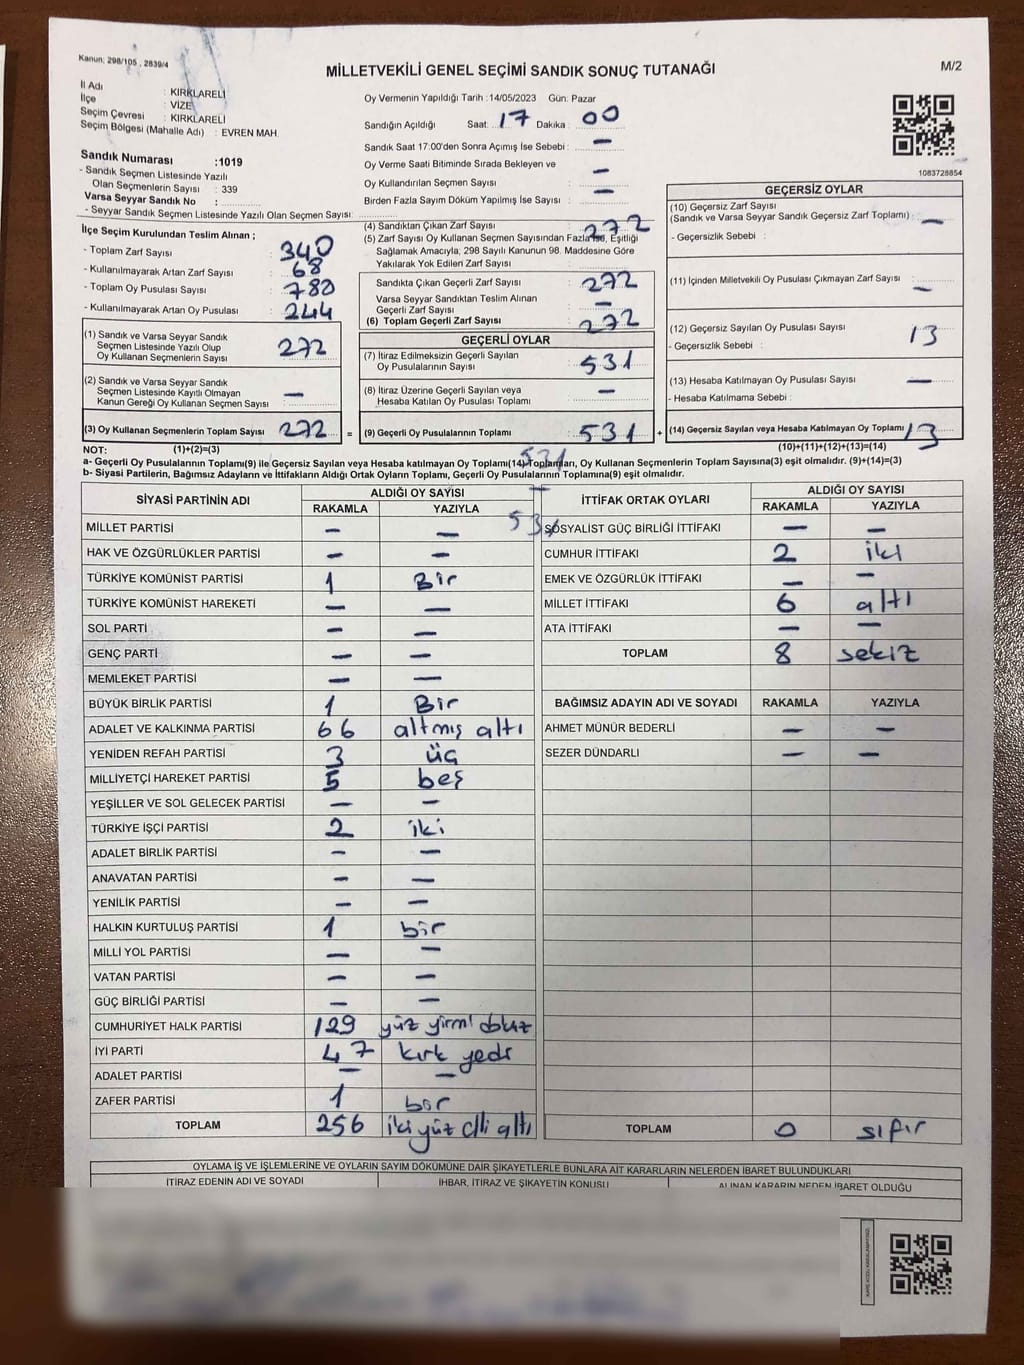 Kanun: 298/105 , 2839/4
MİLLETVEKİLİ GENEL SEÇİMİ SANDIK SONUÇ TUTANAĞI
M/2
İl Adı : KIRKLARELİ
İlçe : VİZE
Seçim Çevresi : KIRKLARELİ
Seçim Bölgesi (Mahalle Adı) : EVREN MAH.
Oy Vermenin Yapıldığı Tarih :14/05/2023 Gün: Pazar
Sandığın Açıldığı Saat: 17 Dakika : 00
Sandık Saat 17:00'den Sonra Açımış İse Sebebi : —
Oy Verme Saati Bitiminde Sırada Bekleyen ve
Oy Kullandırılan Seçmen Sayısı : —
Birden Fazla Sayım Döküm Yapılmış İse Sayısı : —
1083728854
Sandık Numarası :1019
- Sandık Seçmen Listesinde Yazılı
Olan Seçmenlerin Sayısı : 339
Varsa Seyyar Sandık No :
- Seyyar Sandık Seçmen Listesinde Yazılı Olan Seçmen Sayısı:
İlçe Seçim Kurulundan Teslim Alınan ;
- Toplam Zarf Sayısı : 340
- Kullanılmayarak Artan Zarf Sayısı : 68
- Toplam Oy Pusulası Sayısı : 780
- Kullanılmayarak Artan Oy Pusulası : 244
(1) Sandık ve Varsa Seyyar Sandık
Seçmen Listesinde Yazılı Olup
Oy Kullanan Seçmenlerin Sayısı : 272
(2) Sandık ve Varsa Seyyar Sandık
Seçmen Listesinde Kayıtlı Olmayan
Kanun Gereği Oy Kullanan Seçmen Sayısı : —
(3) Oy Kullanan Seçmenlerin Toplam Sayısı : 272 =
(4) Sandıktan Çıkan Zarf Sayısı : 272
(5) Zarf Sayısı Oy Kullanan Seçmen Sayısından Fazla ise, Eşitliği
Sağlamak Amacıyla; 298 Sayılı Kanunun 98. Maddesine Göre
Yakılarak Yok Edilen Zarf Sayısı :
Sandıkta Çıkan Geçerli Zarf Sayısı : 272
Varsa Seyyar Sandıktan Teslim Alınan
Geçerli Zarf Sayısı : —
(6) Toplam Geçerli Zarf Sayısı : 272
GEÇERLİ OYLAR
(7) İtiraz Edilmeksizin Geçerli Sayılan
Oy Pusulalarının Sayısı : 531
(8) İtiraz Üzerine Geçerli Sayılan veya
Hesaba Katılan Oy Pusulası Toplamı : —
(9) Geçerli Oy Pusulalarının Toplamı : 531 +
GEÇERSİZ OYLAR
(10) Geçersiz Zarf Sayısı
(Sandık ve Varsa Seyyar Sandık Geçersiz Zarf Toplamı) : —
- Geçersizlik Sebebi :
(11) İçinden Milletvekili Oy Pusulası Çıkmayan Zarf Sayısı : —
(12) Geçersiz Sayılan Oy Pusulası Sayısı : 13
- Geçersizlik Sebebi :
(13) Hesaba Katılmayan Oy Pusulası Sayısı : —
- Hesaba Katılmama Sebebi :
(14) Geçersiz Sayılan veya Hesaba Katılmayan Oy Toplamı : 13
NOT: (1)+(2)=(3)
(10)+(11)+(12)+(13)=(14)
a- Geçerli Oy Pusulalarının Toplamı(9) ile Geçersiz Sayılan veya Hesaba katılmayan Oy Toplamı(14) Toplamları, Oy Kullanan Seçmenlerin Toplam Sayısına(3) eşit olmalıdır. (9)+(14)=(3)
531
b- Siyasi Partilerin, Bağımsız Adayların ve İttifakların Aldığı Ortak Oyların Toplamı, Geçerli Oy Pusulalarının Toplamına(9) eşit olmalıdır.
SİYASİ PARTİNİN ADI ALDIĞI OY SAYISI
RAKAMLA YAZIYLA
MİLLET PARTİSİ — —
HAK VE ÖZGÜRLÜKLER PARTİSİ — —
TÜRKİYE KOMÜNİST PARTİSİ 1 Bir
TÜRKİYE KOMÜNİST HAREKETİ — —
SOL PARTİ — —
GENÇ PARTİ — —
MEMLEKET PARTİSİ — —
BÜYÜK BİRLİK PARTİSİ 1 Bir
ADALET VE KALKINMA PARTİSİ 66 altmış altı
YENİDEN REFAH PARTİSİ 3 üç
MİLLİYETÇİ HAREKET PARTİSİ 5 beş
YEŞİLLER VE SOL GELECEK PARTİSİ — —
TÜRKİYE İŞÇİ PARTİSİ 2 iki
ADALET BİRLİK PARTİSİ — —
ANAVATAN PARTİSİ — —
YENİLİK PARTİSİ — —
HALKIN KURTULUŞ PARTİSİ 1 bir
MİLLİ YOL PARTİSİ — —
VATAN PARTİSİ — —
GÜÇ BİRLİĞİ PARTİSİ — —
CUMHURİYET HALK PARTİSİ 129 yüz yirmi dokuz
İYİ PARTİ 47 kırk yedi
ADALET PARTİSİ — —
ZAFER PARTİSİ 1 bir
TOPLAM 256 iki yüz elli altı
İTTİFAK ORTAK OYLARI ALDIĞI OY SAYISI
RAKAMLA YAZIYLA
531
SOSYALİST GÜÇ BİRLİĞİ İTTİFAKI — —
CUMHUR İTTİFAKI 2 iki
EMEK VE ÖZGÜRLÜK İTTİFAKI — —
MİLLET İTTİFAKI 6 altı
ATA İTTİFAKI — —
TOPLAM 8 sekiz
BAĞIMSIZ ADAYIN ADI VE SOYADI RAKAMLA YAZIYLA
AHMET MÜNÜR BEDERLİ — —
SEZER DÜNDARLI — —
TOPLAM 0 sıfır
OYLAMA İŞ VE İŞLEMLERİNE VE OYLARIN SAYIM DÖKÜMÜNE DAİR ŞİKAYETLERLE BUNLARA AİT KARARLARIN NELERDEN İBARET BULUNDUKLARI
İTİRAZ EDENİN ADI VE SOYADI İHBAR, İTİRAZ VE ŞİKAYETİN KONUSU ALINAN KARARIN NEDEN İBARET OLDUĞU